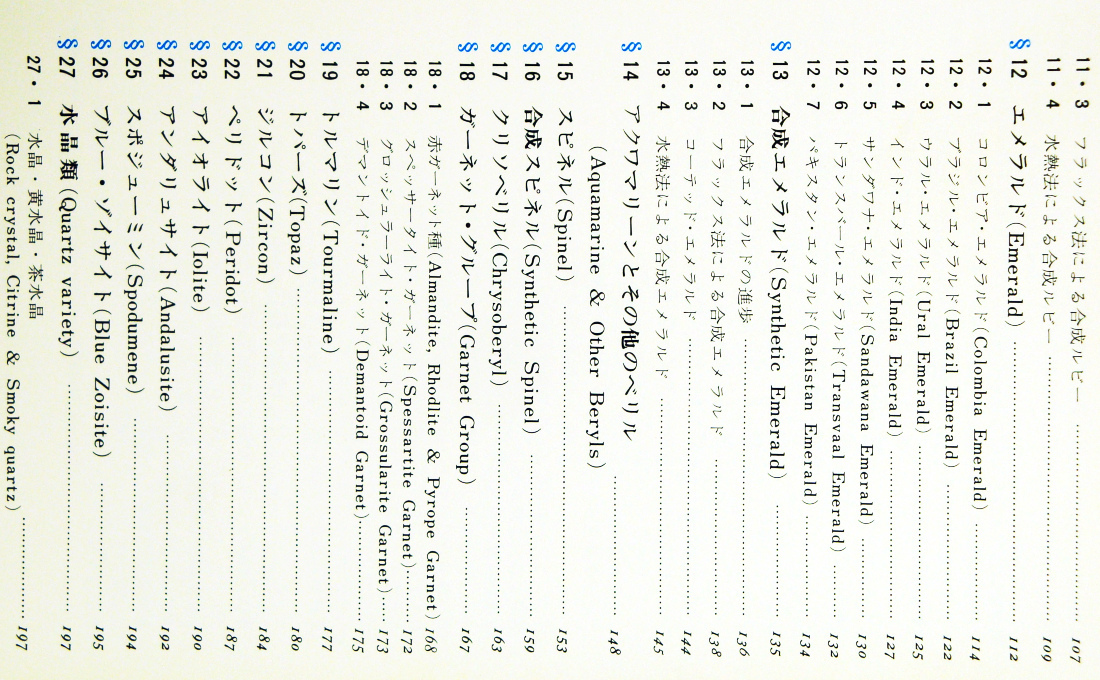 11・3 フラックス法による合成ルビー …… 107
11・4 水熱法による合成ルビー …… 109
§12 エメラルド(Emerald) …… 112
12・1 コロンビア・エメラルド(Colombia Emerald) …… 114
12・2 ブラジル・エメラルド(Brazil Emerald) …… 122
12・3 ウラル・エメラルド(Ural Emerald) …… 125
12・4 インド・エメラルド(India Emerald) …… 127
12・5 サンダワナ・エメラルド(Sandawana Emerald) …… 130
12・6 トランスバール・エメラルド(Transvaal Emerald) …… 132
12・7 パキスタン・エメラルド(Pakistan Emerald) …… 134
§13 合成エメラルド(Synthetic Emerald) …… 135
13・1 合成エメラルドの進歩 …… 136
13・2 フラックス法による合成エメラルド …… 138
13・3 コーテッド・エメラルド …… 144
13・4 水熱法による合成エメラルド …… 145
§14 アクワマリーンとその他のベリル
(Aquamarine & Other Beryls) …… 148
§15 スピネル(Spinel) …… 153
§16 合成スピネル(Synthetic Spinel) …… 159
§17 クリソベリル(Chrysoberyl) …… 163
§18 ガーネット・グループ(Garnet Group) …… 167
18・1 赤ガーネット種(Almandite, Rhodlite & Pyrope Garnet) 168
18・2 スペッサータイト・ガーネット(Spessartite Garnet) …… 172
18・3 グロッシュラーライト・ガーネット(Grossularite Garnet) …… 173
18・4 デマントイド・ガーネット(Demantoid Garnet) …… 175
§19 トルマリン(Tourmaline) …… 177
§20 トパーズ(Topaz) …… 180
§21 ジルコン(Zircon) …… 184
§22 ペリドット(Peridot) …… 187
§23 アイオライト(Iolite) …… 190
§24 アンダリュサイト(Andalusite) …… 192
§25 スポジューミン(Spodumene) …… 194
§26 ブルー・ゾイサイト(Blue Zoisite) …… 195
§27 水晶類(Quartz variety) …… 197
27・1 水晶・黄水晶・茶水晶
(Rock crystal, Citrine & Smoky quartz) …… 197